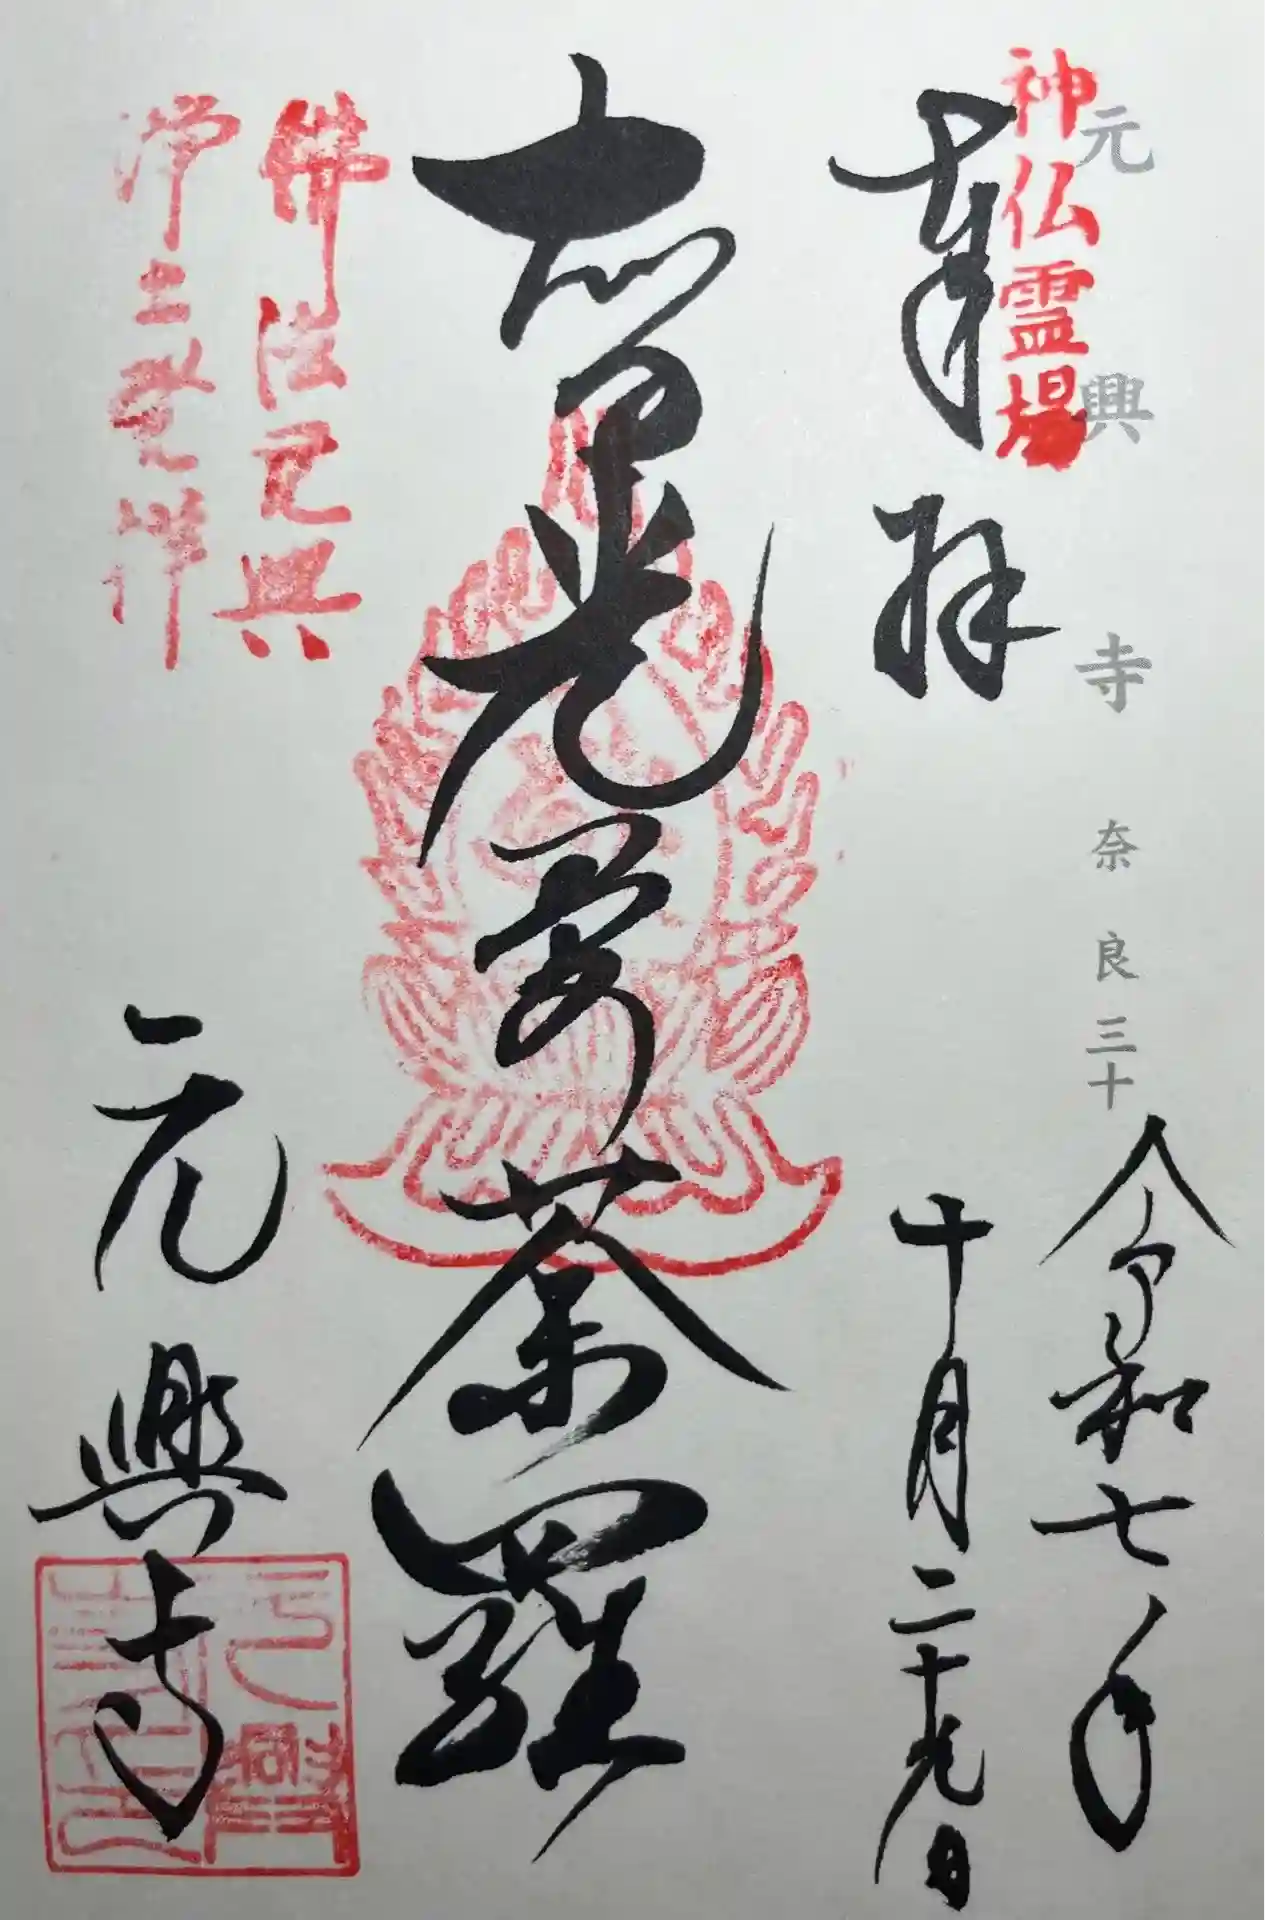 元興寺 奈良三十
神仏霊場
奉拝
令和七年
十月二十九日
智光曼荼羅
佛法元興
浄土發祥
元興寺